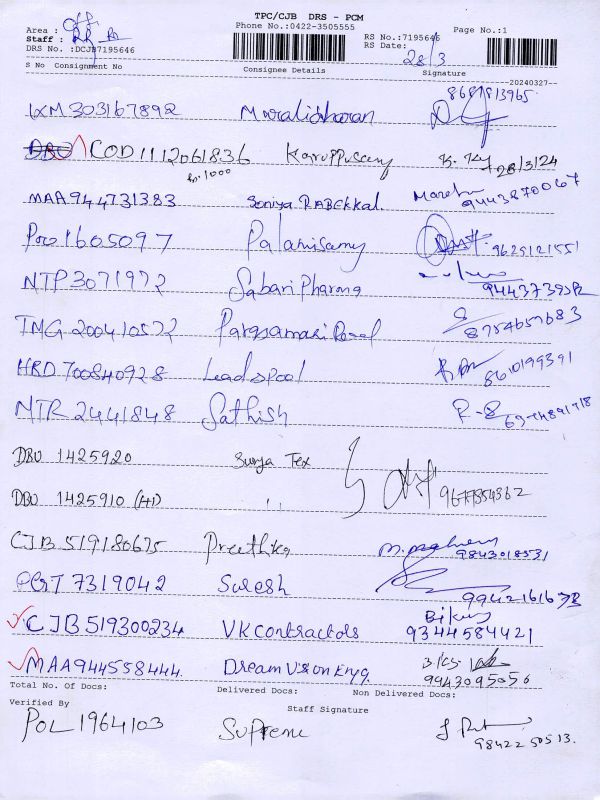 TPC/CJB DRS - PCM
Phone No.:0422-3505555
Area :
Staff :
DRS No. :DCJB7195646
RS No.:7195646
RS Date: 28/3
Page No.:1
S No Consignment No Consignee Details Signature
20240327
IXM 303167892 Muralidharan 8681813965
COD 1112061836 Karuppusamy 28/3/24
Rs. 1000
MAA 944731383 Soniya RABEKKAL. 9443870067
1605097 Palanisamy 9629121551
NTP 3071972 Sabari Pharma
TMG 200410572 8754657683
HRD 700840928 Leadspool 8610199391
NTR 2441848 Sathish
DBU 1425920 Surya Tex
DBU 1425910 (HD) ,,
CJB 519180675 Preethka 9843018531
7319042 Suresh
CJB 519300234 VK Contractors 9344584421
MAA 944558444 Dream Vision Engg. 9943095056
Total No. Of Docs: Delivered Docs: Non Delivered Docs:
Verified By Staff Signature
POL 1964103 Supreme
98422 50513.